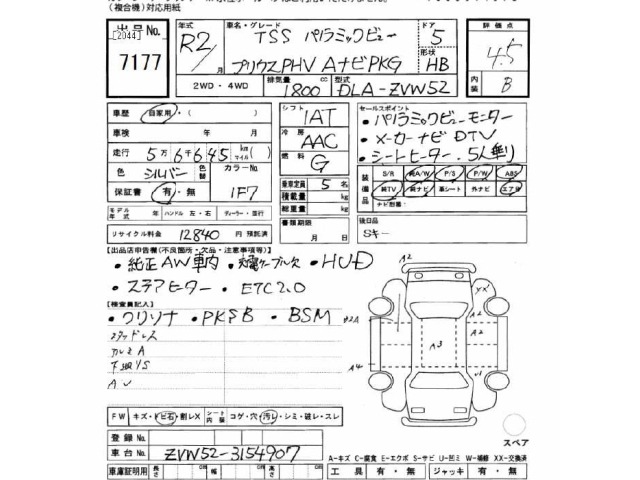 (複合機)対応用紙
出品No.
[2044]
7177
年式
R2/
月
車名・グレード
TSS パノラミックビュー
プリウスPHV AナビPKG
ドア
5
形状
HB
評価点
4.5
内装
B
2WD・4WD
排気量
1800
cc
型式
DLA-ZVW52
車歴
自家用・( )
車検
年 月
走行
5万6千645
km
マイル
色
シルバー
色替
カラーNo.
1F7
保証書
有・無
モデル年式
年
ハンドル
左・右
ディーラー・並行
リサイクル料金
12840
円
預託済
シフト
IAT
冷房
AAC
燃料
G
乗車定員
5
名
積載量
kg
総重量
kg
書類期限
月 日
セールスポイント
・パノラミックビューモニター
・メーカーナビ DTV
・シートヒーター・5人乗り
装備品
S/R
純A/W
P/S
P/W
ABS
純TV
純ナビ
革シート
外ナビ
エアB
ナビ型番:
後日品
Sキー
【出品店申告欄(不良箇所・欠品・注意事項等)】
・純正AW車内 ・充電ケーブル欠 ・HUD
・ステアヒーター ・ETC2.0
【検査員記入】
・クリソナ ・PKSB ・BSM
スタッドレス
A2
XX
A2
A2
A3
A4
A2
FW
キズ・トビ石・割レX
シート内装
コゲ・穴・汚レ・シミ・破レ・スレ
スペア
登録No.
車台No.
ZVW52-3154907
A-キズ C-腐食 E-エクボ S-サビ U-凹ミ W-補修 XX-交換済
車庫証明用
長さ
cm
幅
cm
高さ
cm
工具
有・無
ジャッキ
有・無